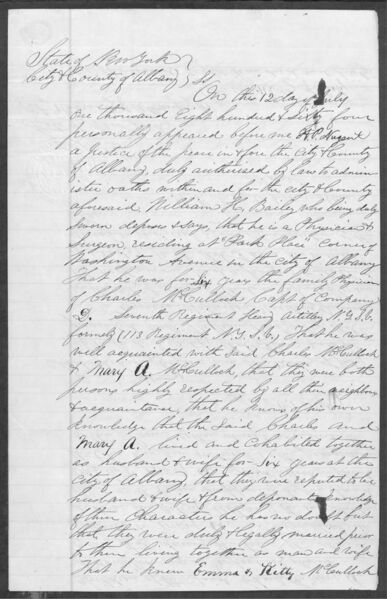 State of New York
City & County of Albany } SS
On this 12 day of July
One thousand Eight hundred & Sixty four
personally appeared before me H. P. Nugent
a Justice of the peace in & for the City & County
of Albany, duly authorised by law to admin
ister oaths within and for the City & County
aforesaid, William H. Bailey who being duly
sworn deposes & says, that he is a Physician &
Surgeon, residing at "Park Place" corner of
Washington Avenue in the City of Albany
That he was for Six years the family Physician
of Charles McCulloch Capt of Company
D. Seventh Regiment Heavy Artillery N.Y.S.V.
formely (113 Regiment N.Y.S.V.) That he was
well acquainted with said Charles McCulloch
& Mary A. McCulloch, that they were both
persons highly respected by all their neighbors
& acquaintance, that he knows of his own
knowledge that the said Charles and
Mary A. lived and Cohabited together
as husband & wife for Six years at the
City of Albany, that they were reputed to be
husband & wife & from deponants knowledge
of their Character he has no doubt but
that, they were duly & legally married prior
to their living together as man and wife
That he knew Emma & Kitty McCulloch